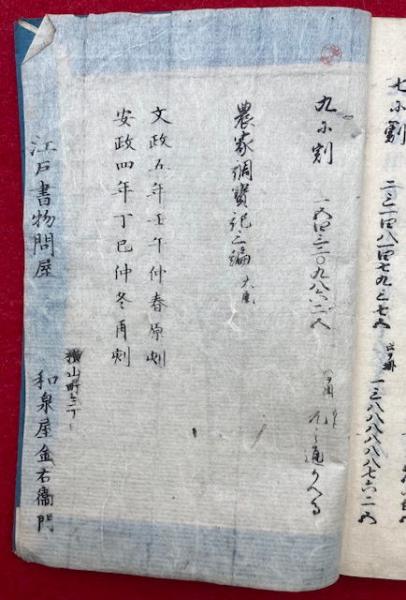 七ニ割 二三一四八一四七九三七五
一三八八八八八八七六二五
九ニ割 一五四三二〇九八六二五
元之通りへる
農家調宝記三編
文政五年壬午仲春原刻
安政四年丁巳仲冬再刻
横山町三丁
江戸書物問屋 和泉屋金右衛門